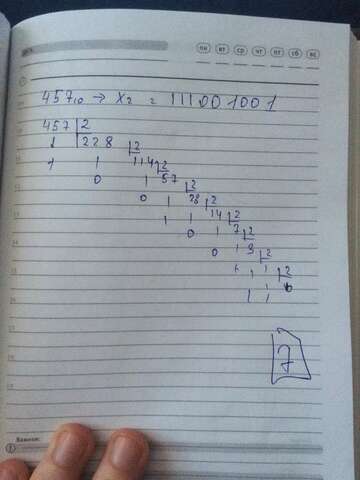 пн вт ср чт пт сб вс
457₁₀ → X₂ = 111001001
457 2
1 228 2
1 1 114 2
0 1 57 2
0 1 28 2
1 1 14 2
0 1 7 2
0 1 3 2
1 1 1 2
1
1 1
7
Важно: